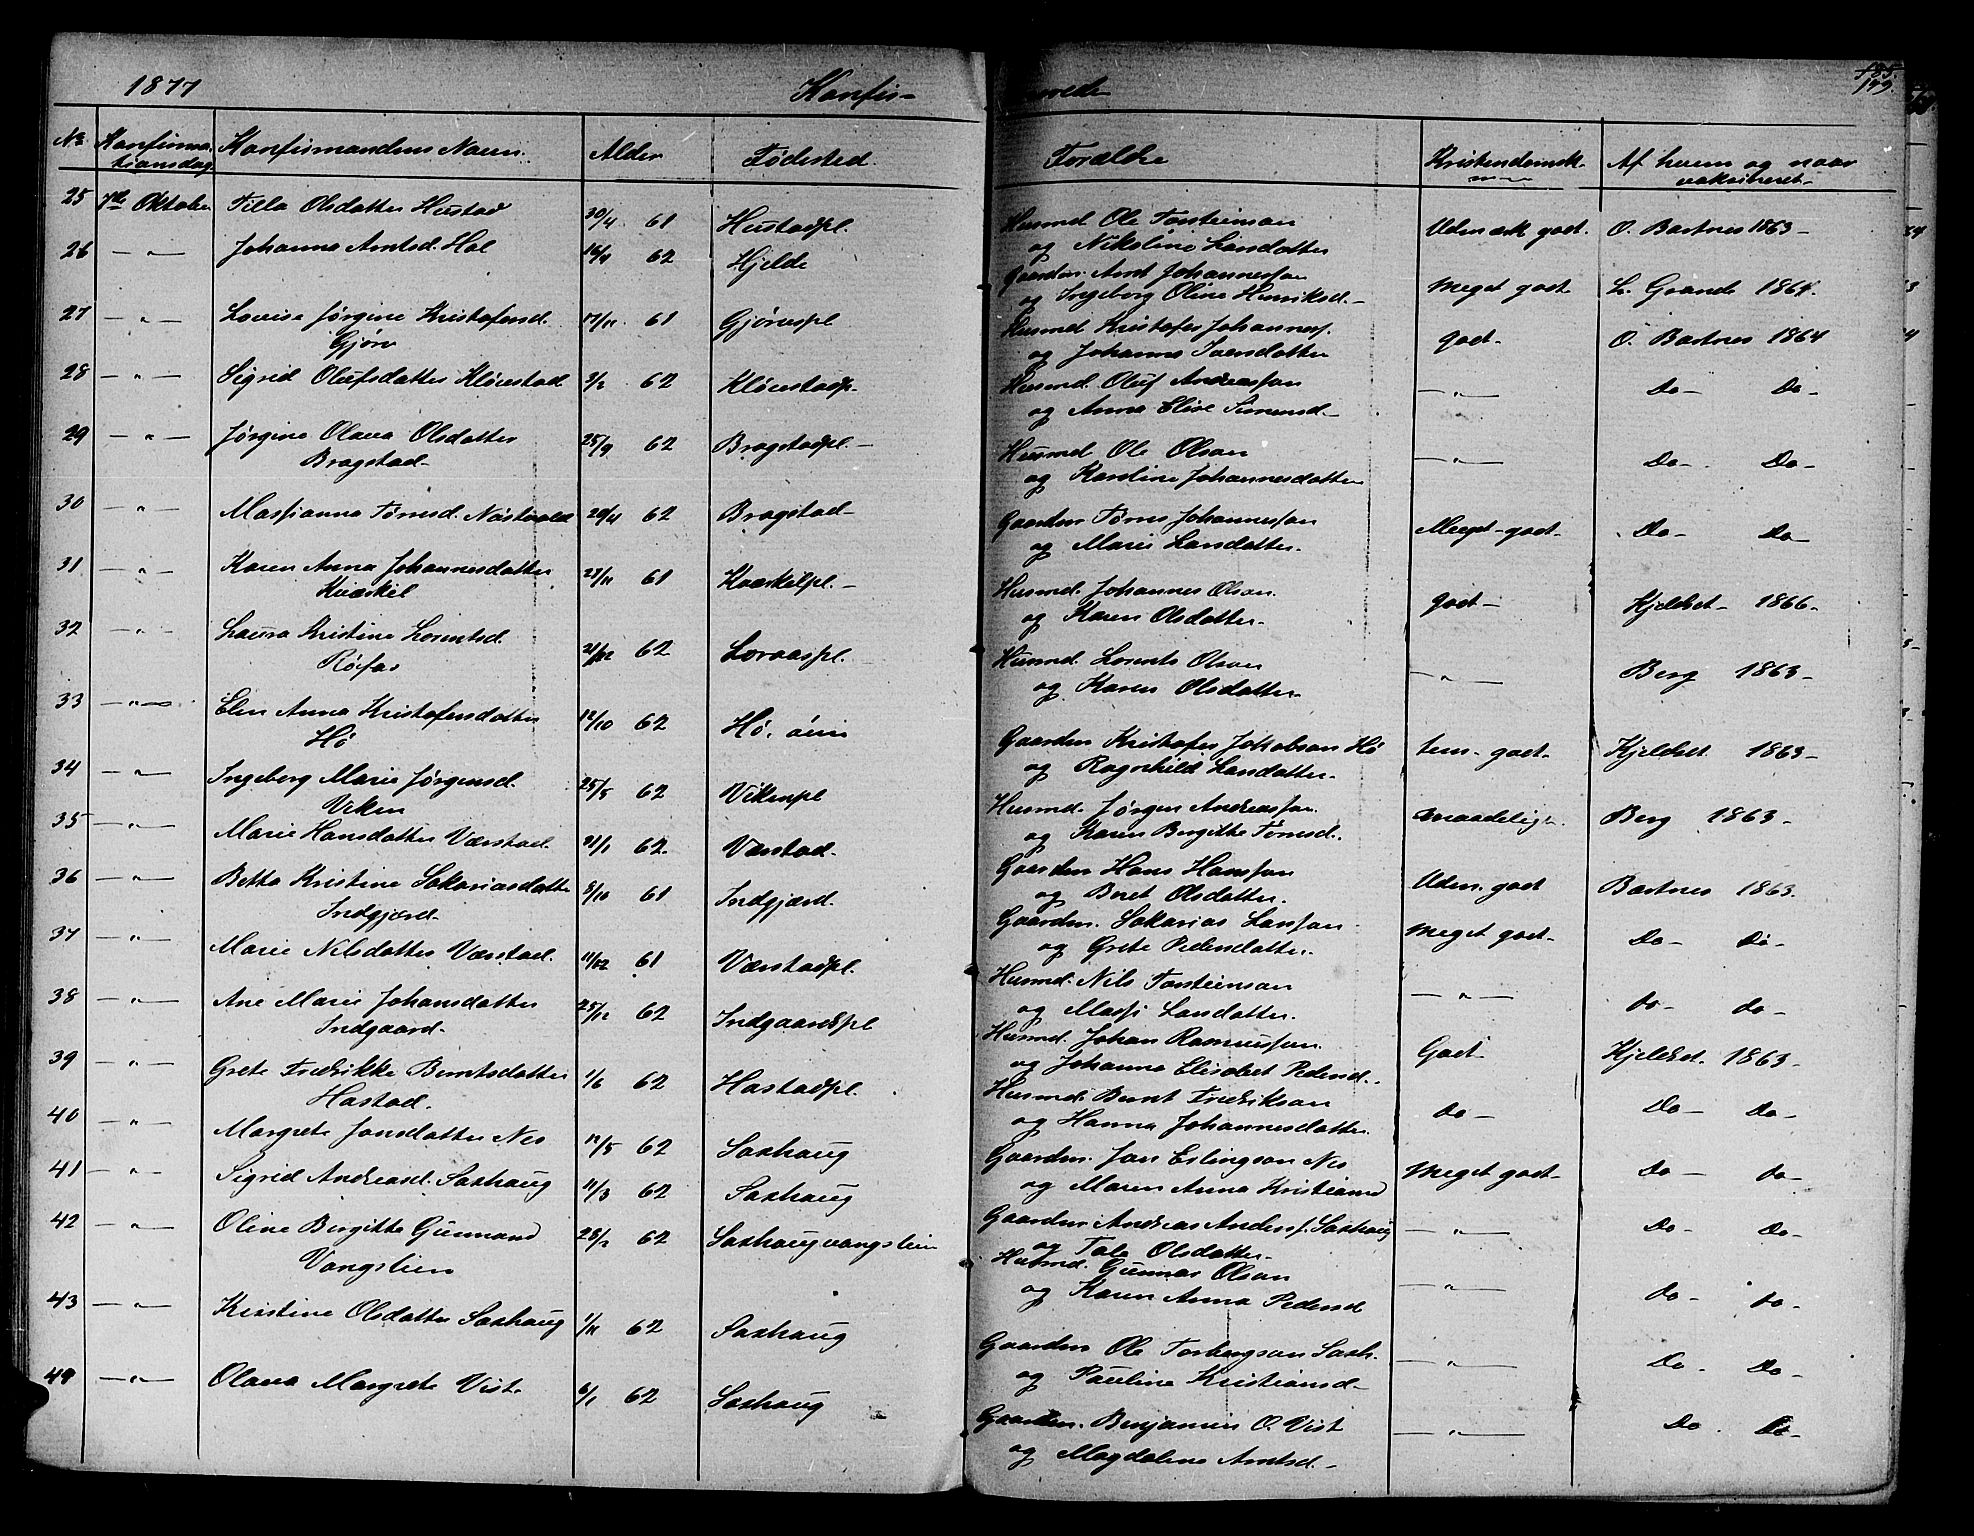 1877 Konfir- merede 185. 199.
No Konfirma- tionsdag. Konfirmandens Navn. Alder Fødested. Forældre Kristendomsk. Af hvem og naar vaksineret-
25 7de Oktober Tilla Olsdatter Hustad 30/4 61 Hustadpl. Husmd Ole Torsteinsøn Udmærk godt. O. Bartnes 1863-
og Nikoline Larsdatter
26 -"- Johanna Arntsd. Hol 62 Hjelde Gaardm. Arnt Johannessøn Meget godt L. Grande 1864.
og Ingeborg Oline Henriksd.-
27 -"- Lovise Jørgine Kristofersd. 17/11 61 Gjørvpl Husmd Kristofer Johanness. godt- O. Bartnes 1864
Gjørv og Johanna Iversdatter
28 -"- Sigrid Olufsdatter Kløvstad 3/2 62 Kløvstadp. Husmd. Oluf Andreassøn -"- Do- Do-
og Anna Elise Simensd-
29 -"- Jørgine Olava Olsdatter 25/9 62 Bragstadpl- Husmd Ole Olson -"- Do-. Do-
Bragstad- og Karoline Johannesdatter
30 -"- Massianna Tørresd. Nøstvold 20/4 62 Bragstad- Gaardm Tørres Johannessøn Meget-godt- Do- Do-
og Marie Larsdatter.
31 -"- Karen Anna Johannesdatter 23/11 61 Kvæskilpl.- Husmd. Johannes Olson. godt- Kjeldset- 1866-
Kvæskil og Karen Olsdatter-
32 -"- Laura Kristine Lorentsd. 62 Loraaspl. Husmd. Lorents Olson -"- Berg 1863-
og Karen Olsdatter-
33 -"- Elen Anna Kristofersdatter 12/10 62 Hø, Gaardm Kristofer Jakobson Hø tem- godt- Kjeldset 1863-
Hø og Ragnhild Larsdatter-
34 -"- Ingeborg Marie Jørgensd. 25/5 62 Vikenpl Husmd. Jørgen Andreassøn maadelig. Berg 1863-
Viken og Karen Birgitte Tørresd.
35 -"- Marie Hansdatter Værstad. 21/1 62. Værstad- Gaardm Hans Hanssøn Udm. godt Bartnes 1863.
og Beret Olsdatter.
36 -"- Betta Kristine Sakariasdatter 8/10 61 Indgjærd. Gaardm. Sakarias Larssøn Meget godt- Do- Do-
Indgjærd- og Grete Pedersdatter.
37 -"- Marie Nilsdatter Værstad. 11/12 61 Værstadpl. Husmd. Nils Torsteinson -"- do- do-
og Massi Larsdatter.
38 -"- Ane Marie Johansdatter 25/12 62 Indgaardspl Husmd. Johan Rasmussøn Godt- Kjeldset. 1863-
Indgaard- og Johanna Elisabet Pedersd..
39 -"- Grete Fredrikke Berntsdatter 1/6 62 Hastadpl. Husmd. Bernt Fredrikson Do- Do- Do-
Hastad. og Hanna Johannesdatter.
40 -"- Margrete Jonsdatter Nes 12/5 62 Saxhaug Gaardm. Jon Erlingson Nes Meget godt- Do- do-
og Maren Anna Kristiansd
41 -"- Sigrid Andreasd. Saxhaug 11/3 62 Saxhaug Gaardm Andreas Anderss. Saxhaug -"- Do- Do-
og Tale Olsdatter-
42 -"- Oline Bergitte Gunnarsd 28/2 62 Saxhaugvangslein Husmd. Gunnar Olson -"- do- do-
Vangslein og Karen Anna Pedersd
43 -"- Kristine Olsdatter Saxhaug 1/11 62 Saxhaug Gaardm Ole Torbergson Saxh. -"- Do- Do-
og Pauline Kristiansd-
44 -"- Olava Margrete Vist. 6/1 62 Saxhaug Gaardm. Benjamin O. Vist -"- Do Do-
og Magdalena Arntsd.-